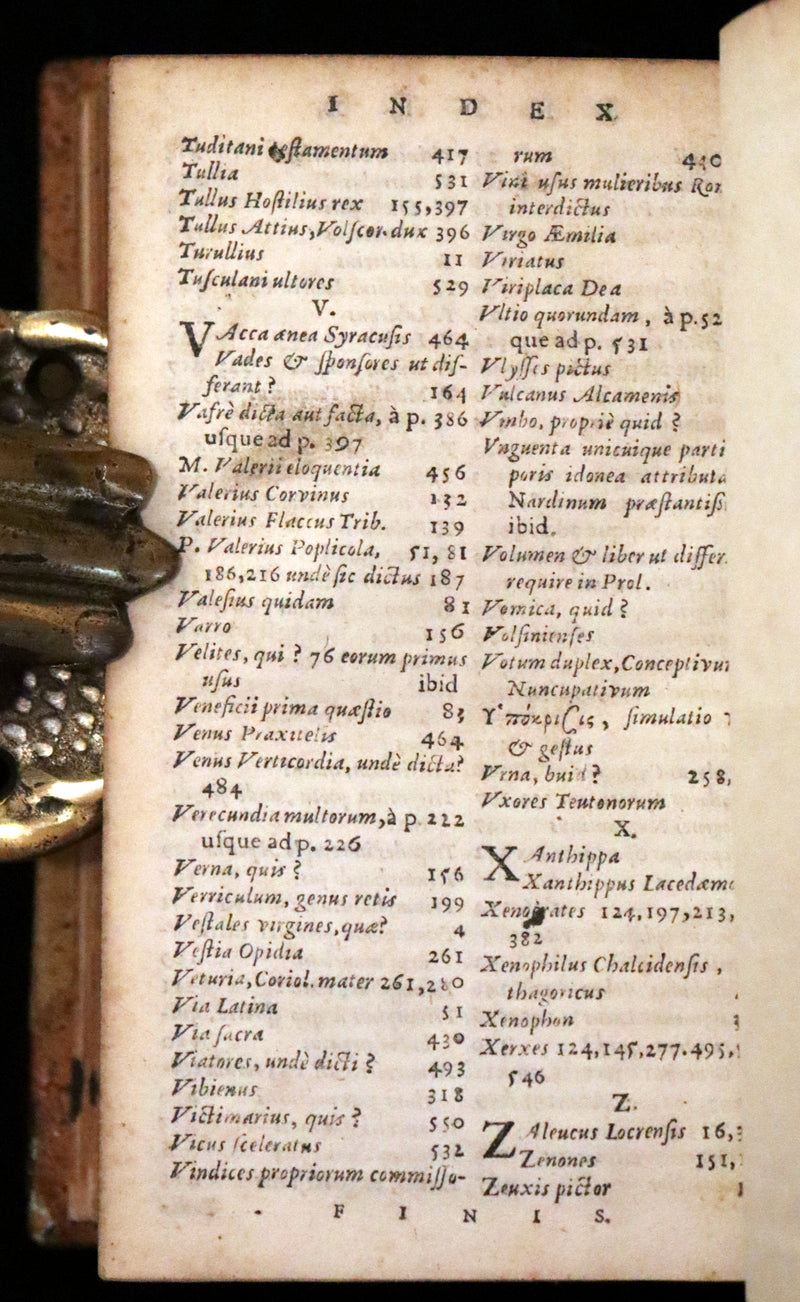 I N D E X
Tuditani testamentum 417
Tullia 531
Tullus Hoſtilius rex 155,397
Tullus Attius,Volſcor.dux 396
Turullius 11
Tuſculani ultores 529
V.
VAcca ænea Syracuſis 464
Vades & ſponſores ut diſ-
ferant ? 164
Vafrè dicta aut facta, à p. 386
uſque ad p. 397
M. Valerii eloquentia 456
Valerius Corvinus 132
Valerius Flaccus Trib. 139
P. Valerius Poplicola, 51, 81
186,216 undè ſic dictus 187
Valeſius quidam 81
Varro 156
Velites, qui ? 76 eorum primus
uſus ibid
Veneficii prima quæſtio 83
Venus Praxitelis 464
Venus Verticordia, undè dicta?
484
Verecundia multorum,à p 222
uſque ad p. 226
Verna, quis ? 156
Verriculum, genus retis 199
Veſtales virgines,quæ? 4
Veſtia Opidia 261
Veturia,Coriol.mater 261,280
Via Latina 51
Via ſacra 430
Viatores, undè dicti ? 493
Vibienus 318
Victimarius, quis ? 550
Vicus ſceleratus 532
Vindices propriorum commiſſo-
rum 440
Vini uſus mulieribus Ror
interdictus
Virgo Æmilia
Viriatus
Viriplaca Dea
Vltio quorundam , à p.52
que ad p. 531
Vlyſſes pictus
Vulcanus Alcamenis
Vmbo, propriè quid ?
Vnguenta unicuique parti
poris idonea attributa
Nardinum præſtantiſſ
ibid.
Volumen & liber ut differ.
require in Prol.
Vomica, quid ?
Volſinienſes
Votum duplex,Conceptivum
Nuncupativum
Ὑπόκρισις , ſimulatio
& geſtus
Vrna, 258,
Vxores Teutonorum
X.
XAnthippa
Xanthippus Lacedæmo
Xenocrates 124,197,213,
382
Xenophilus Chalcidenſis ,
thagoricus
Xenophon
Xerxes 124,145,277.495,
546
Z.
ZAleucus Locrenſis 16,
Zenones 151,
Zeuxis pictor
F I N I S.